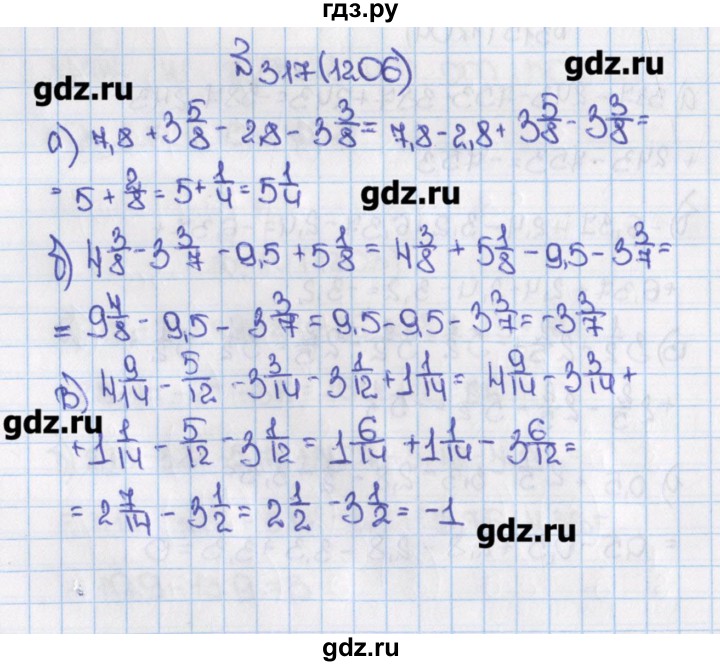 гдз.ру
№317(1206)
gdz.ru
gdz.ru
а) 7,8 + 3 5/8 - 2,8 - 3 3/8 = 7,8 - 2,8 + 3 5/8 - 3 3/8 =
= 5 + 2/8 = 5 + 1/4 = 5 1/4
gdz.ru
б) 4 3/8 - 3 3/7 - 9,5 + 5 1/8 = 4 3/8 + 5 1/8 - 9,5 - 3 3/7 =
= 9 4/8 - 9,5 - 3 3/7 = 9,5 - 9,5 - 3 3/7 = -3 3/7
в) 4 9/14 - 5/12 - 3 3/14 - 3 1/12 + 1 1/14 = 4 9/14 - 3 3/14 +
gdz.ru
+ 1 1/14 - 5/12 - 3 1/12 = 1 6/14 + 1 1/14 - 3 6/12 =
= 2 7/14 - 3 1/2 = 2 1/2 - 3 1/2 = -1
gdz.ru
gdz.ru